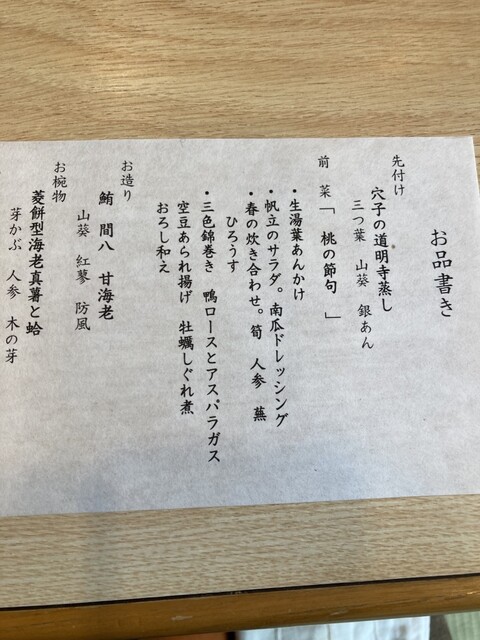 お品書き
先付け
穴子の道明寺蒸し
三つ葉 山葵 銀あん
前 菜「 桃の節句 」
・生湯葉あんかけ
・帆立のサラダ。南瓜ドレッシング
・春の炊き合わせ。筍 人参 蕪
ひろうす
・三色錦巻き 鴨ロースとアスパラガス
空豆あられ揚げ 牡蠣しぐれ煮
おろし和え
お造り
鮪 間八 甘海老
山葵 紅蓼 防風
お椀物
菱餅型海老真薯と蛤
芽かぶ 人参 木の芽